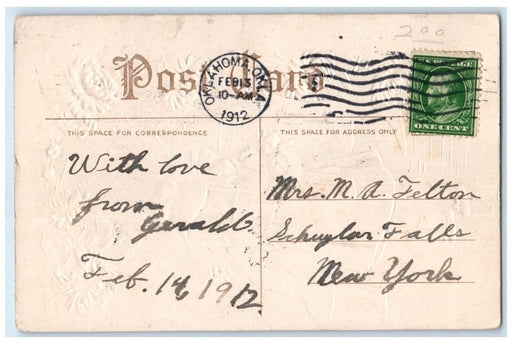 200
Post Card
OKLAHOMA, OKLA.
FEB 13
10-AM
1912
U.S. POSTAGE
ONE CENT
THIS SPACE FOR CORRESPONDENCE
THIS SPACE FOR ADDRESS ONLY
With love
from
Gerald.
Feb. 14, 1912.
Mrs. M. A. Felton
Schuylar Falls
New York